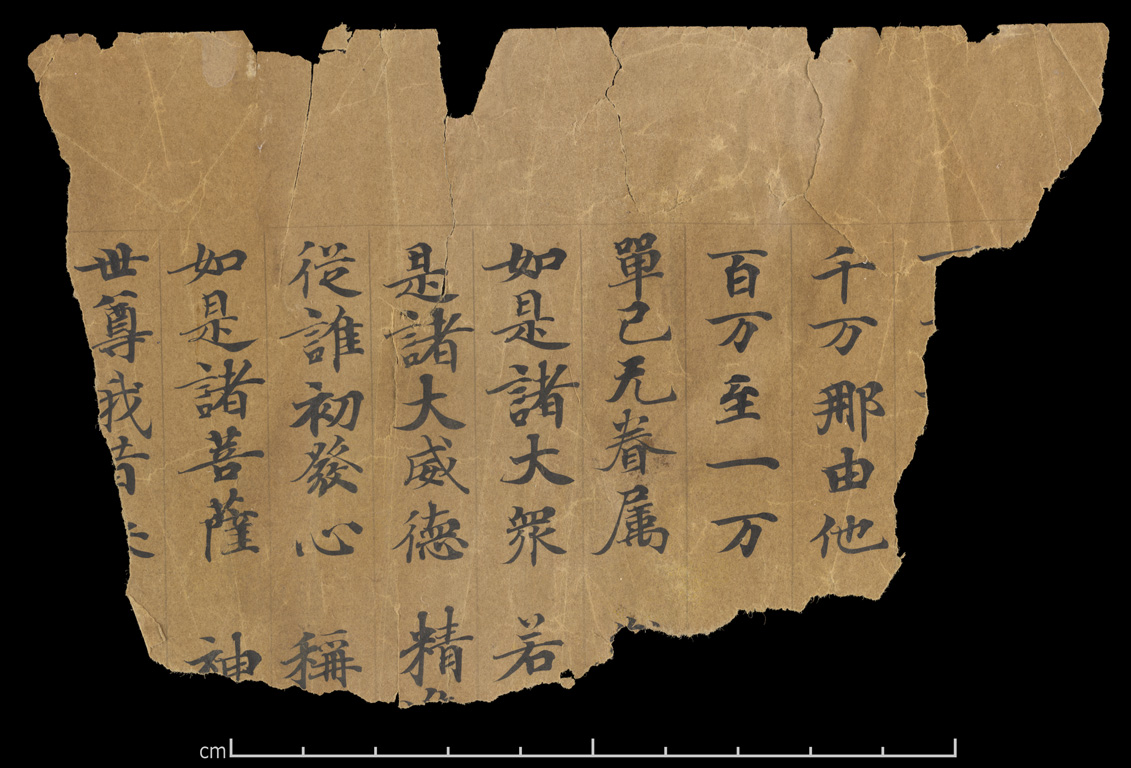 千万那由他
百万至一万
單己无眷属
如是諸大衆 若
是諸大威德 精
從誰初發心 稱
如是諸菩薩 神
世尊我昔
cm